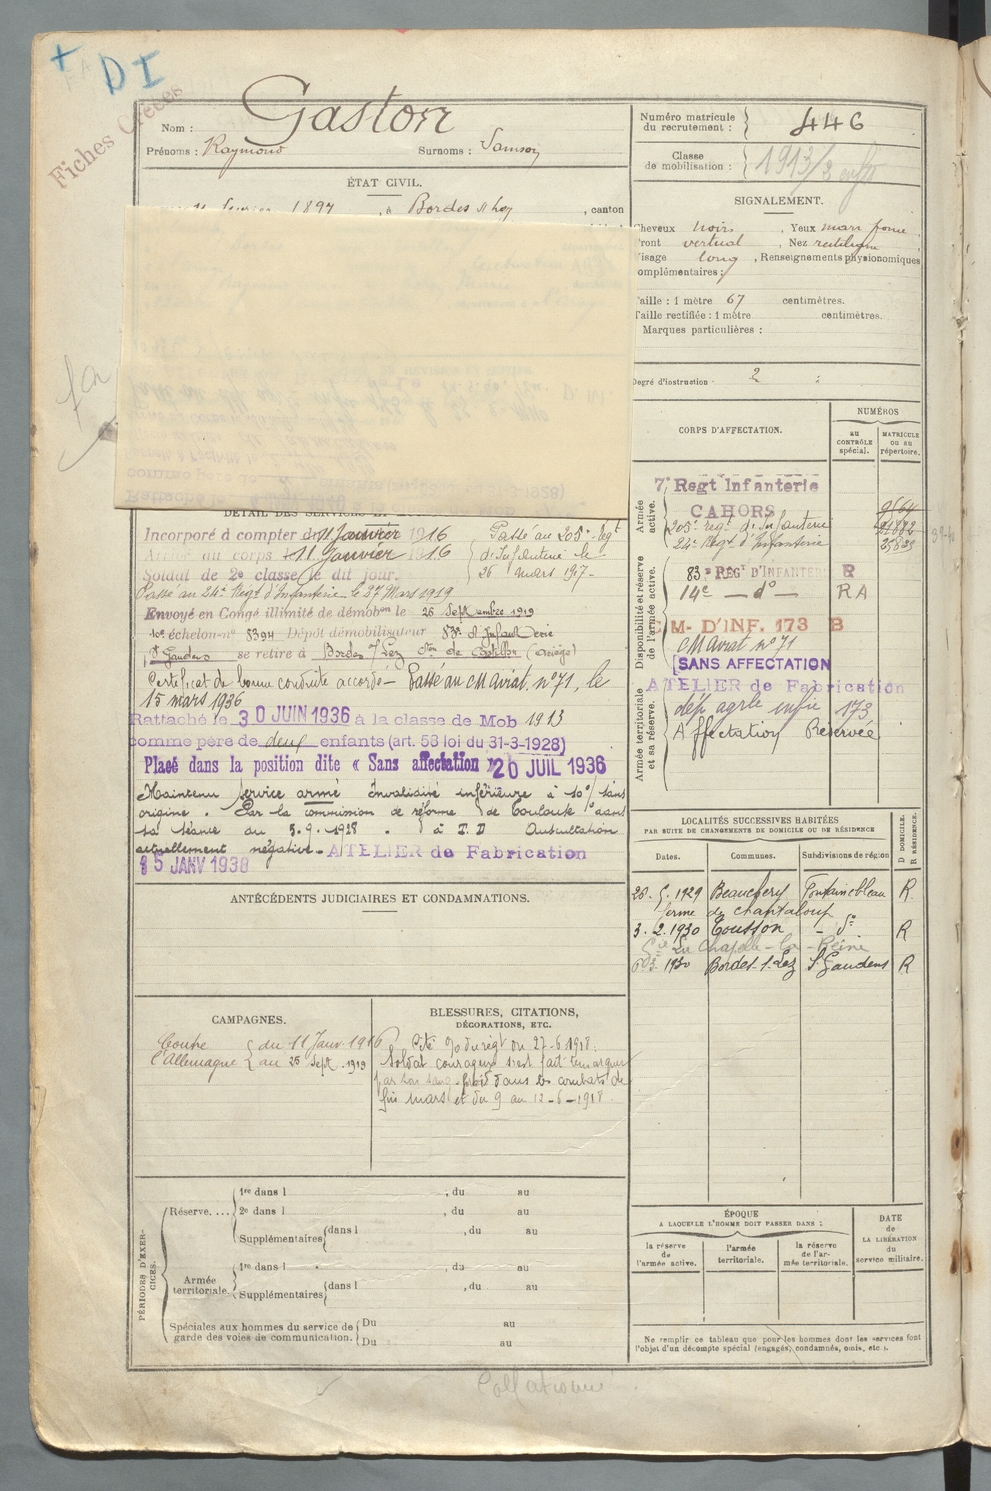 + DI
Fiches Créées
Nom : Gaston
Prénoms : Raymond Surnoms : Samson
Numéro matricule du recrutement : 446
Classe de mobilisation : 1913/3
ÉTAT CIVIL.
février 1897, à Bordes s/Lez, canton
SIGNALEMENT.
Cheveux noirs, Yeux marr foncé,
Front vertical, Nez rectiligne
Visage long, Renseignements physionomiques
complémentaires :
Taille : 1 mètre 67 centimètres.
Taille rectifiée : 1 mètre centimètres.
Marques particulières :
Degré d'instruction : 2
CORPS D'AFFECTATION.
NUMÉROS
AU CONTRÔLE spécial.
MATRICULE OU AU répertoire.
Armée active.
7e Regt Infanterie
CAHORS
205e régt d'Infanterie
24e Regt d'Infanterie
Disponibilité et réserve de l'armée active.
83e REGT D'INFANTERIE R
14e — do — RA
CM D'INF. 173 B
CM Aviat no 71
SANS AFFECTATION
Armée territoriale et sa réserve.
ATELIER de Fabrication
dép. agrle infie 173
Affectation Réservée
DÉTAIL DES SERVICES ET
Incorporé à compter du 11 Janvier 1916
Arrivé au corps le 11 Janvier 1916
Soldat de 2e classe le dit jour.
Passé au 205e Regt
d'Infanterie le
26 mars 1917-
Passé au 24e Regt d'Infanterie le 27 Mars 1919
Envoyé en Congé illimité de démobon le 25 Septembre 1919
10e échelon-no 5394 Dépôt démobilisateur 83e d'Infanterie
St Gaudens se retire à Bordes s/Lez Con de Castillon (Ariège)
Certificat de bonne conduite accordé - Passé au CM Aviat. no 71, le
15 mars 1936
Rattaché le 30 JUIN 1936 à la classe de Mob 1913
comme père de deux enfants (art. 58 loi du 31-3-1928)
Placé dans la position dite « Sans affectation » 20 JUIL 1936
Maintenu service armé invalidité inférieure à 10% sans
origine. Par la commission de réforme de Toulouse dans
sa séance du 5.9.1928. Auscultation
actuellement négative. ATELIER de Fabrication
15 JANV 1938
ANTÉCÉDENTS JUDICIAIRES ET CONDAMNATIONS.
LOCALITÉS SUCCESSIVES HABITÉES
PAR SUITE DE CHANGEMENTS DE DOMICILE OU DE RÉSIDENCE
D DOMICILE. R RÉSIDENCE.
Dates. Communes. Subdivisions de région
28.5.1929 Beauchery Fontainebleau R
ferme de chantaloup
3.2.1930 Tousson - do R
La Chapelle-la-Reine
1930 Bordes-s-Lez St Gaudens R
CAMPAGNES.
Contre l'Allemagne { du 11 Janv. 1916
au 25 Sept. 1919
BLESSURES, CITATIONS,
DÉCORATIONS, ETC.
Cité O du régt du 27-6-1918.
Soldat courageux s'est fait remarquer
par son sang-froid dans les combats de
fin mars et du 9 au 12-6-1918.
PÉRIODES D'EXERCICES.
Réserve.... 1re dans l , du au
2e dans l , du au
Supplémentaires dans l , du au
Armée territoriale. 1re dans l , du au
Supplémentaires dans l , du au
Spéciales aux hommes du service de garde des voies de communication. Du au
Du au
ÉPOQUE
A LAQUELLE L'HOMME DOIT PASSER DANS :
la réserve de l'armée active.
l'armée territoriale.
la réserve de l'armée territoriale.
DATE de LA LIBÉRATION du service militaire.
Ne remplir ce tableau que pour les hommes dont les services font
l'objet d'un décompte spécial (engagés, condamnés, omis, etc.).
Collationné